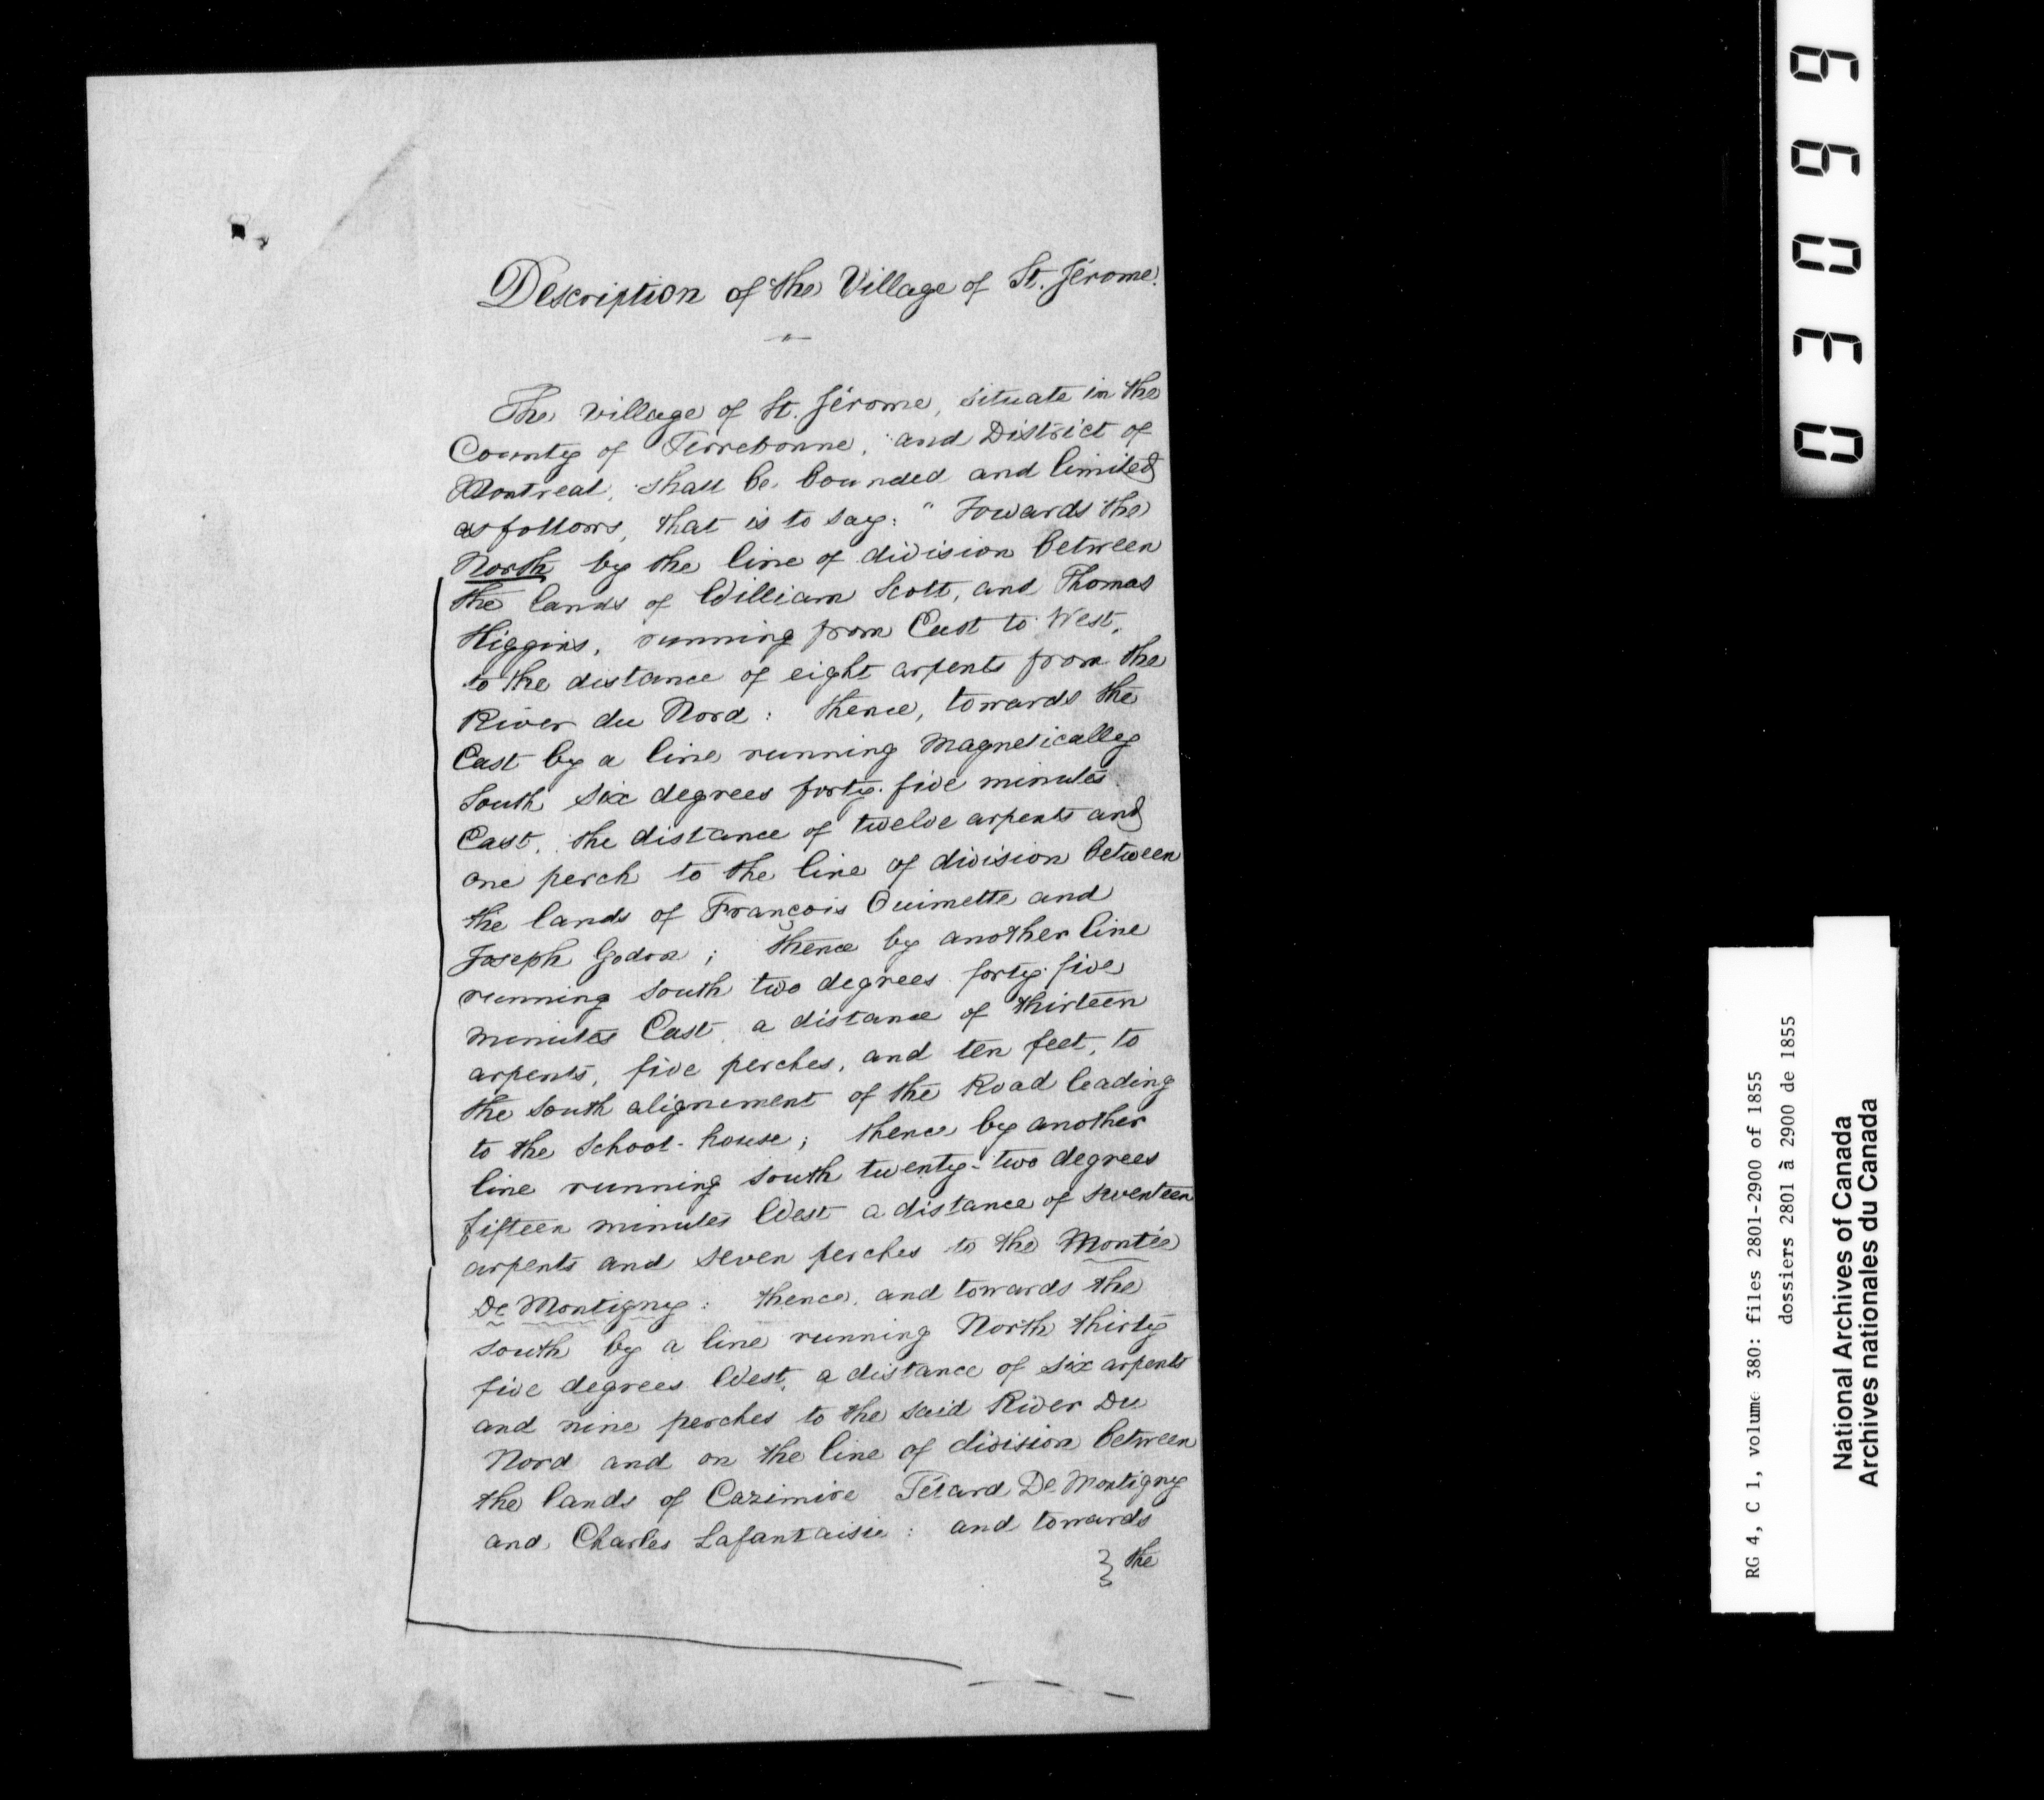 Description of the Village of St. Jérome.
The village of St. Jérome, situate in the
County of Terrebonne, and District of
Montreal, shall be bounded and limited
as follows, that is to say: " Towards the
North by the line of division between
the lands of William Scott, and Thomas
Higgins, running from East to West,
to the distance of eight arpents from the
River du Nord: thence, towards the
East by a line running magnetically
South six degrees forty-five minutes
East, the distance of twelve arpents and
one perch to the line of division between
the lands of François Ouimette and
Joseph Godon; thence by another line
running south two degrees forty-five
minutes East, a distance of thirteen
arpents, five perches, and ten feet, to
the south alignement of the Road leading
to the School-house; thence by another
line running south twenty-two degrees
fifteen minutes West a distance of seventeen
arpents and seven perches to the Montée
De Montigny: thence, and towards the
south by a line running North thirty
five degrees West, a distance of six arpents
and nine perches to the said River Du
Nord and on the line of division between
the lands of Cazimire Tétard De Montigny
and Charles Lafantaisie: and towards
the
03099
RG 4, C 1, volume 380: files 2801-2900 of 1855
dossiers 2801 à 2900 de 1855
National Archives of Canada
Archives nationales du Canada